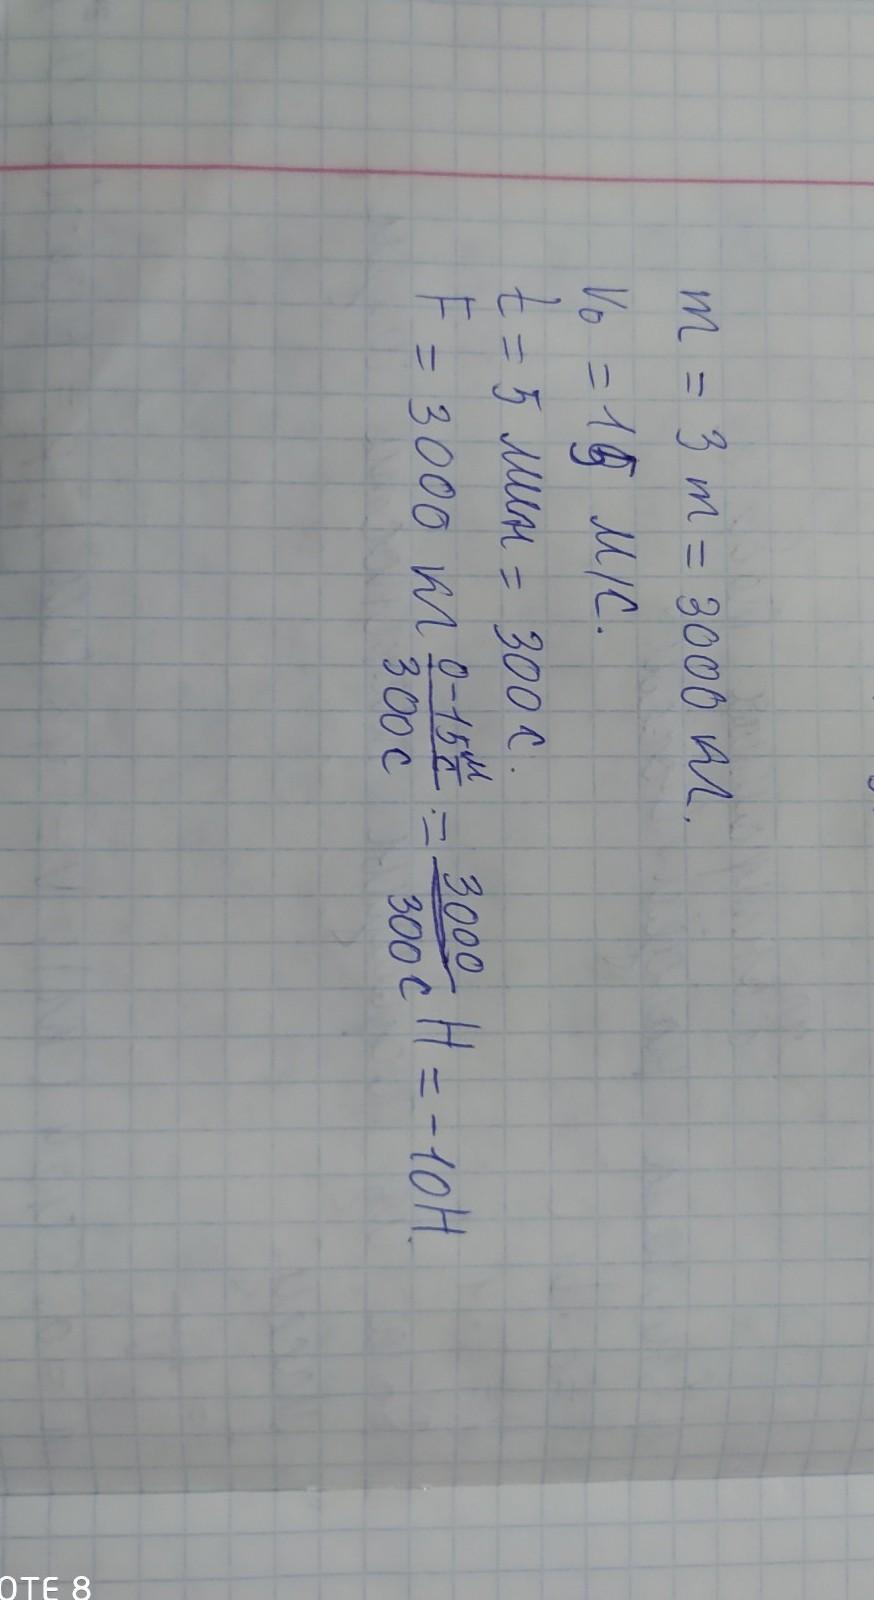 m = 3 т = 3000 кг.
V₀ = 15 м/с.
t = 5 мин = 300 с.
F = 3000 кг (0-15 м/с)/300 с = 3000/300 с Н = -10 Н.
OTE 8